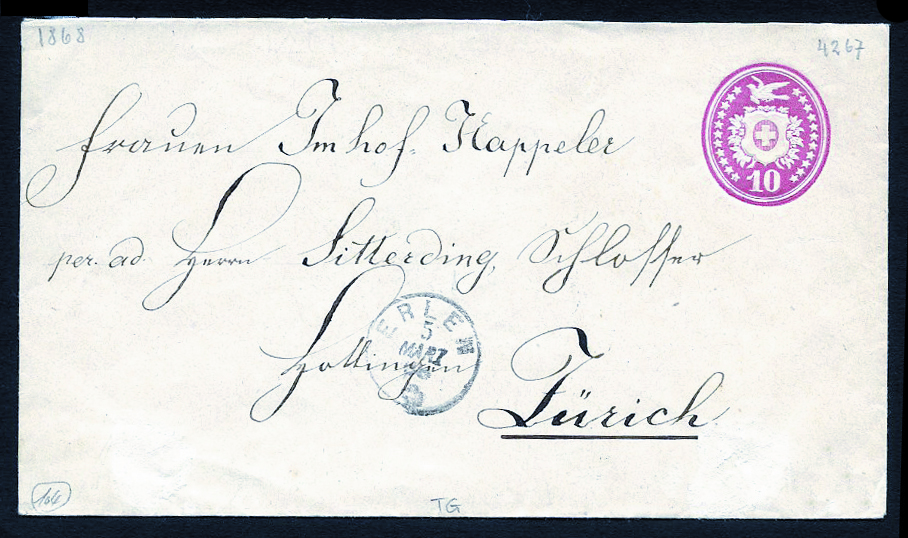 1868
4267
10
Frauen Imhof-Kappeler
per. ad. Herrn Sitterding, Schlosser
ERLEN
5
MÄRZ
Hottingen
Zürich
TG